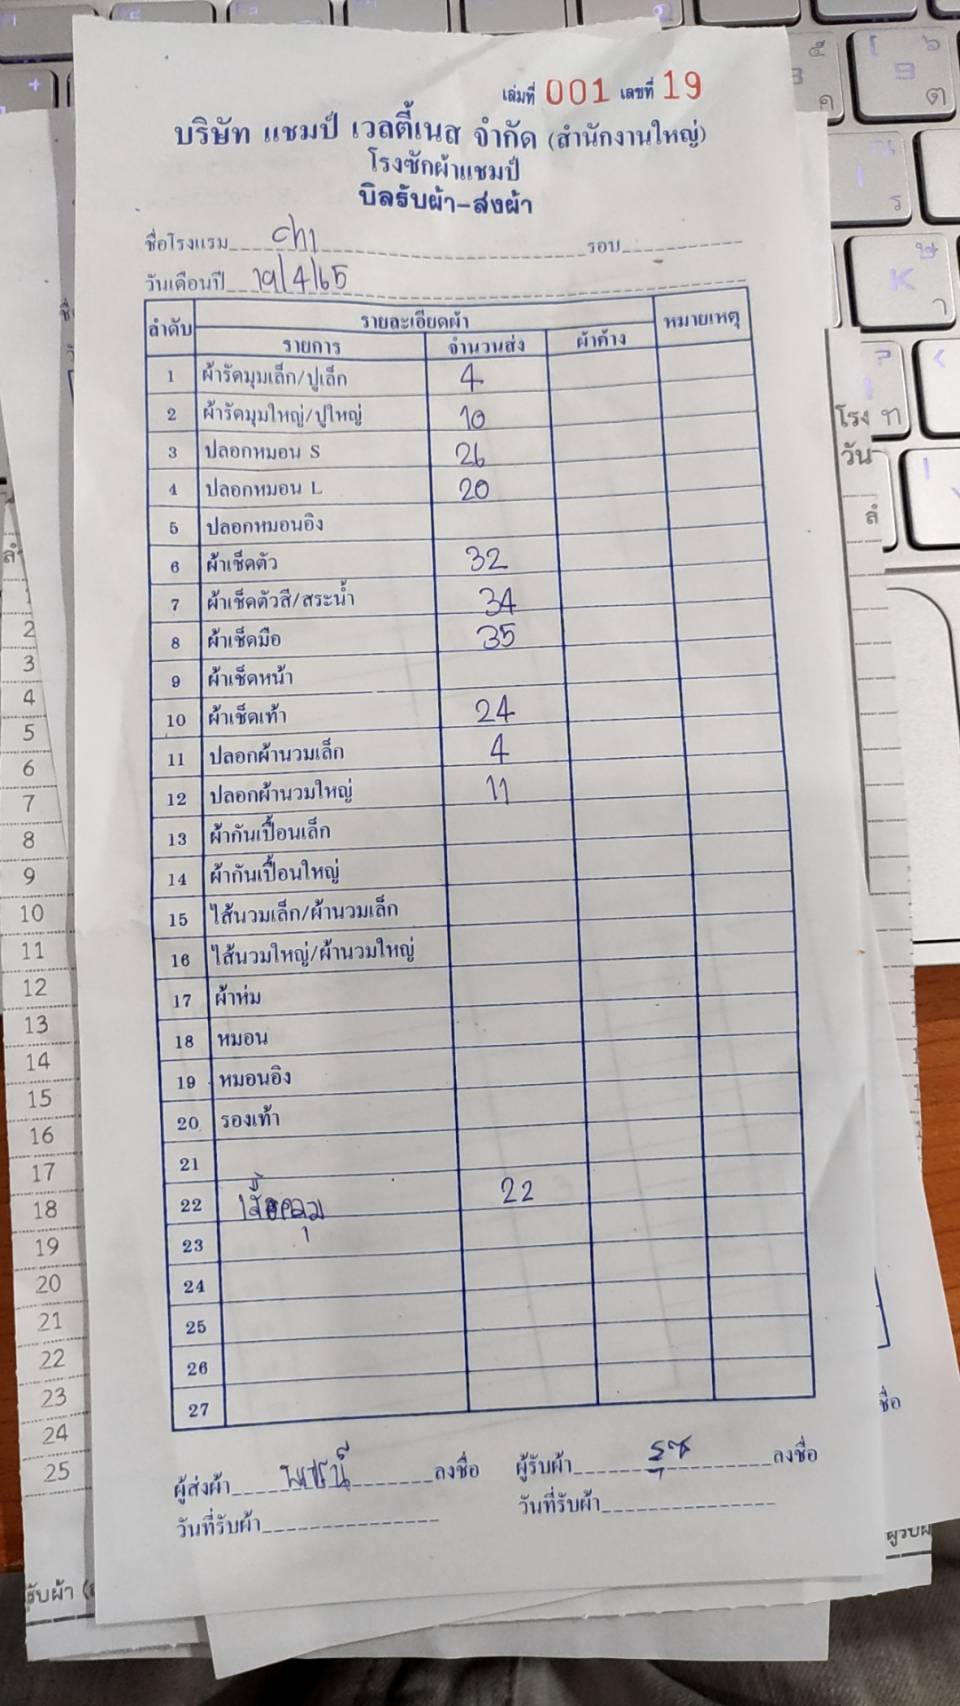 เล่มที่ 001 เลขที่ 19
บริษัท แชมป์ เวลตี้เนส จำกัด (สำนักงานใหญ่)
โรงซักผ้าแชมป์
บิลรับผ้า-ส่งผ้า
ชื่อโรงแรม chi รอบ
วันเดือนปี 19/4/65
ลำดับ รายละเอียดผ้า หมายเหตุ
รายการ จำนวนส่ง ผ้าค้าง
1 ผ้ารัดมุมเล็ก/ปูเล็ก 4
2 ผ้ารัดมุมใหญ่/ปูใหญ่ 10
3 ปลอกหมอน S 26
4 ปลอกหมอน L 20
5 ปลอกหมอนอิง
6 ผ้าเช็ดตัว 32
7 ผ้าเช็ดตัวสี/สระน้ำ 34
8 ผ้าเช็ดมือ 35
9 ผ้าเช็ดหน้า
10 ผ้าเช็ดเท้า 24
11 ปลอกผ้านวมเล็ก 4
12 ปลอกผ้านวมใหญ่ 11
13 ผ้ากันเปื้อนเล็ก
14 ผ้ากันเปื้อนใหญ่
15 ไส้นวมเล็ก/ผ้านวมเล็ก
16 ไส้นวมใหญ่/ผ้านวมใหญ่
17 ผ้าห่ม
18 หมอน
19 หมอนอิง
20 รองเท้า
21
22 เสื้อคลุม 22
23
24
25
26
27
ผู้ส่งผ้า ลงชื่อ ผู้รับผ้า ลงชื่อ
วันที่รับผ้า วันที่รับผ้า